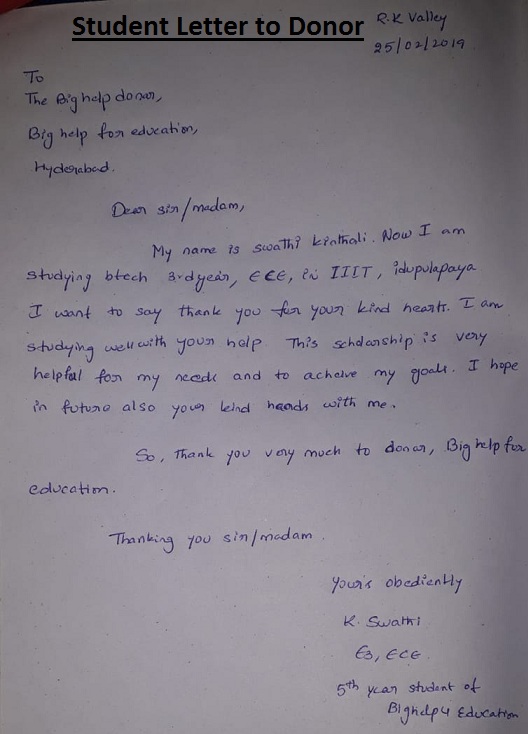 Student Letter to Donor
R.K Valley
25/02/2019
To
The Big help donar,
Big help for education,
Hyderabad.
Dear sir/madam,
My name is swathi kinthali. Now I am
studying btech 3rd year, ECE, in IIIT, idupulapaya
I want to say thank you for your kind hearts. I am
studying well with your help This scholarship is very
helpful for my needs and to acheive my goals. I hope
in future also your kind hands with me.
So, Thank you very much to donar, Big help for
education.
Thanking you sir/madam.
your's obediently
K. Swathi
E3, ECE.
5th year student of
Bighelp4 Education